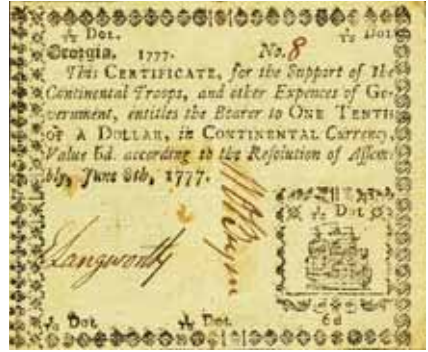 1/10 Dol. 1/10 Dol.
Georgia, 1777. No. 8
This CERTIFICATE, for the Support of the
Continental Troops, and other Expences of Go-
vernment, entitles the Bearer to ONE TENTH
OF A DOLLAR, in CONTINENTAL Currency,
Value 6d. according to the Resolution of Assem-
bly, June 8th, 1777.
1/10 Dol
E Langworthy
1/10 Dol. 1/10 Dol. 6d